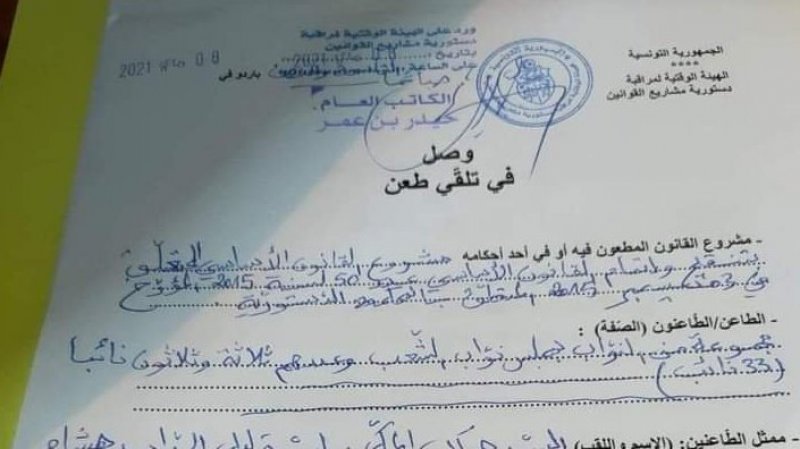 الجمهورية التونسية
****
الهيئة الوقتية لمراقبة
دستورية مشاريع القوانين
ورد على الهيئة الوقتية لمراقبة
دستورية مشاريع القوانين
بتاريخ
على الساعة
صباحا
الكاتب العام
حيدر بن عمر
باردو في 08 ماي 2021
وصل
في تلقّي طعن
- مشروع القانون المطعون فيه أو في أحد أحكامه مشروع القانون الأساسي المتعلّق
بتنقيح وإتمام القانون الأساسي عدد 50 لسنة 2015 المؤرخ
في 3 ديسمبر 2015 المتعلّق بالمحكمة الدستورية
- الطاعن/الطّاعنون (الصّفة) :
مجموعة من النوّاب بمجلس نوّاب الشّعب وعددهم ثلاثة وثلاثون نائبا
(33 نائب)
- ممثل الطّاعنين: (الاسم واللقب)